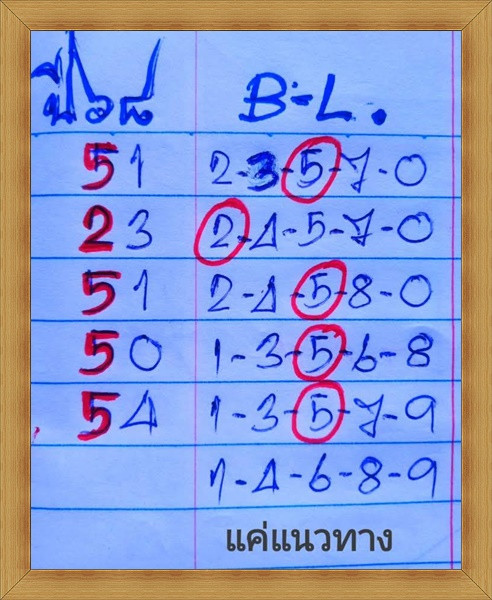 B-L.
51 2-3-5-7-0
23 2-4-5-7-0
51 2-4-5-8-0
50 1-3-5-6-8
54 1-3-5-7-9
1-4-6-8-9
แค่แนวทาง